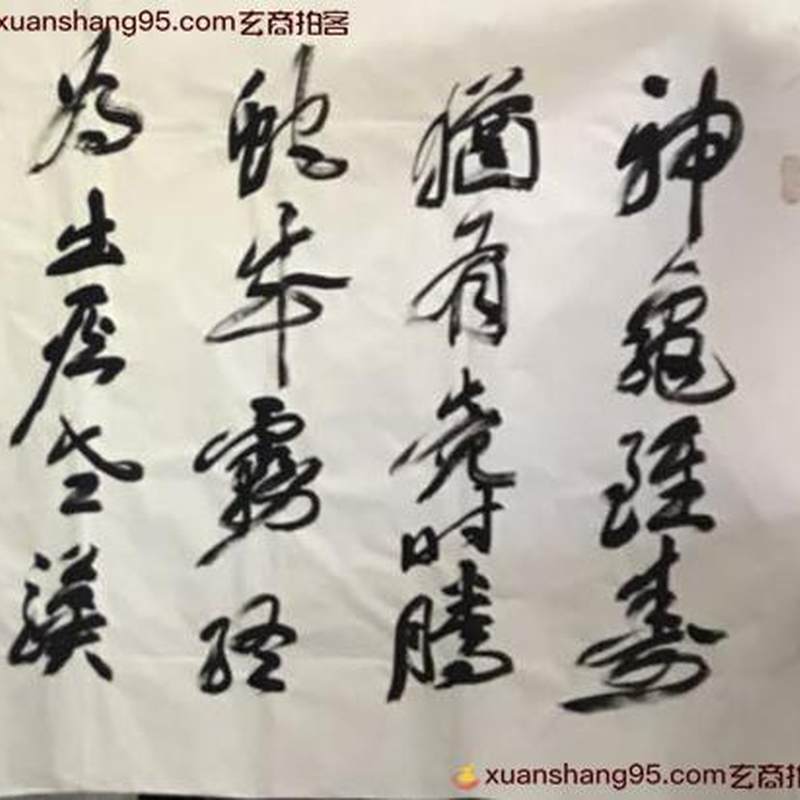 xuanshang95.com玄商拍客
神龜雖壽
猶有竟时騰
蛇乘霧终
為土灰老驥
xuanshang95.com玄商拍